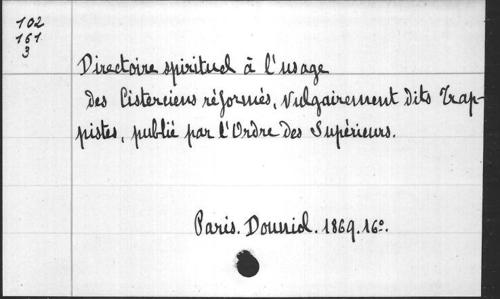 102
161
3
Directoire spirituel à l'usage
des Cisterciens réformés, vulgairement dits Trap-
pistes, publié par l'Ordre des Supérieurs.
Paris. Douniol. 1869. 16º.